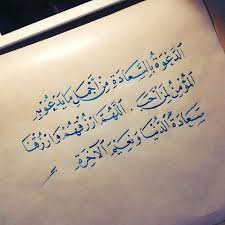 الدَّعْوَةُ بِالسَّعَادَةِ مِنْ أَجْمَلِ مَا يَدْعُو بِهِ
المُؤْمِنُ لِمَنْ أَحَبَّ ، اللَّهُمَّ ارْزُقْهُمْ وَارْزُقْنَا
سَعَادَةَ الدُّنْيَا وَنَعِيمَ الآخِرَةِ